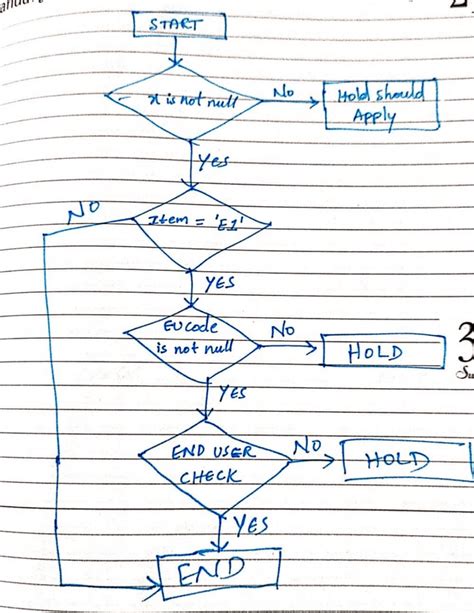 START
x is not null
No
Hold should
Apply
YES
NO
Item = 'E1'
YES
EU code
is not null
No
HOLD
3
Su
YES
END USER
CHECK
NO
HOLD
YES
END